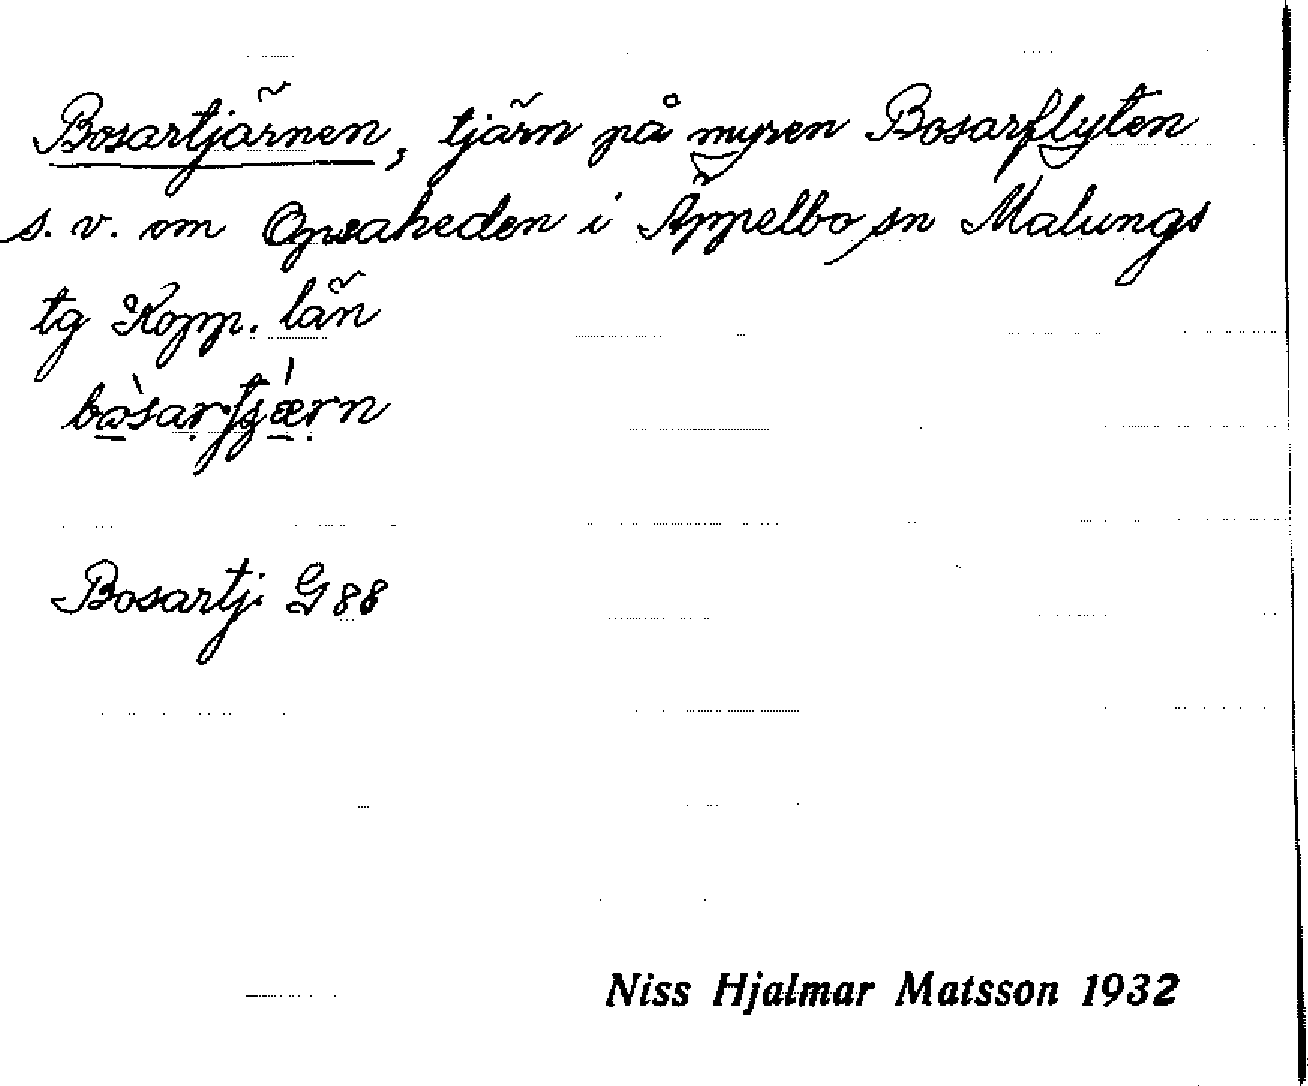 Bosartjärnen, tjärn på myren Bosarflyten
s. v. om Opsaheden i Äppelbo sn Malungs
tg Kopp. län
bò̲sarˌtjæ̲̀rn
Bosartj. G 88
Niss Hjalmar Matsson 1932